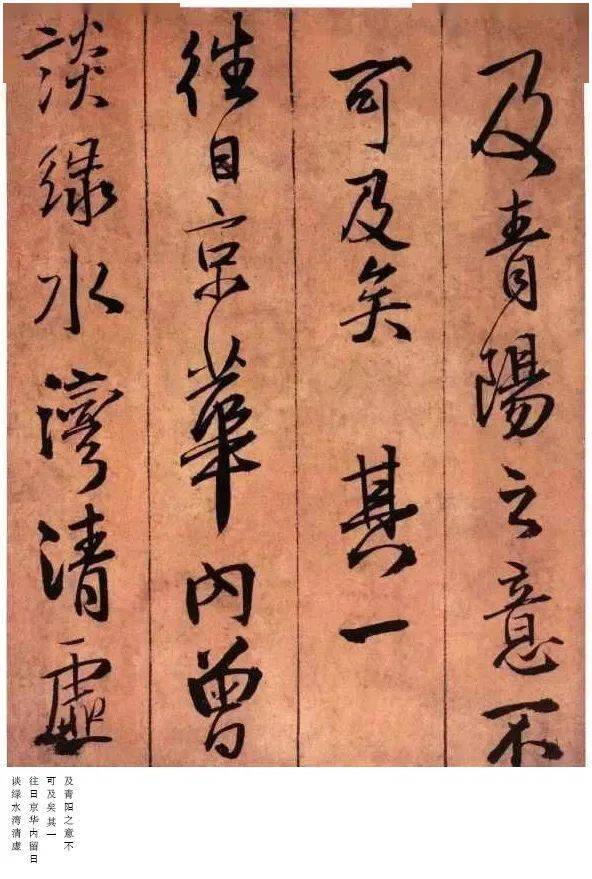 及青陽之意不
可及矣 其一
往日京華內曾
談綠水灣清虛
及青阳之意不
可及矣其一
往日京华内留日
谈绿水湾清虚